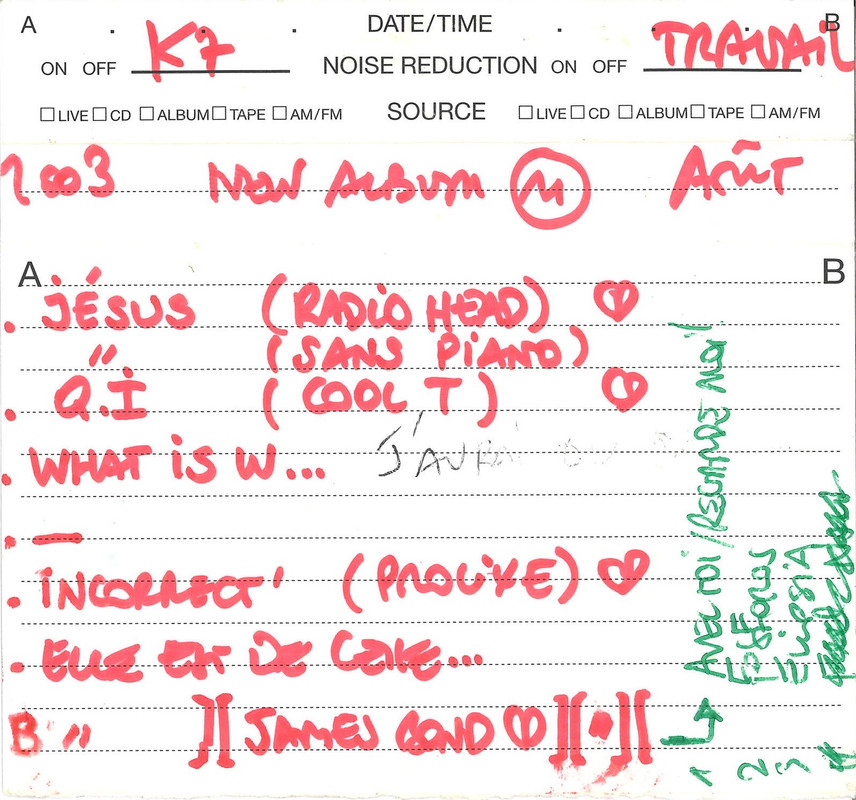 A DATE/TIME B
K7 TRAVAIL
ON OFF NOISE REDUCTION ON OFF
☐ LIVE ☐ CD ☐ ALBUM ☐ TAPE ☐ AM/FM SOURCE ☐ LIVE ☐ CD ☐ ALBUM ☐ TAPE ☐ AM/FM
2003 NEW ALBUM M AOÛT
A B
. JÉSUS (RADIO HEAD) ♡
" (SANS PIANO)
. Q.I (COOL T) ♡
. WHAT IS W... J'AURAI
. —
. INCORRECT' (PROLIXE) ♡
. ELLE EST DE
B " ][ JAMES BOND ♡ ][ ][
1 AVEC TOI / REGARDE MOI
2
3
4